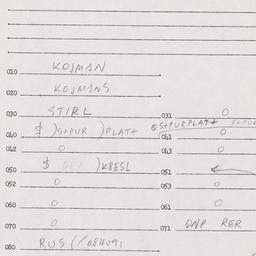 010 KOJMAN
020 KOJMANS
030 STIRL 031 0
040 $ )S+PUR )PLAT+ @S+PURPLAT+ S+PUR
041 0
042 0 043 0
050 $ )KBESL 051
052 0 053 0
060 0 061 0
070 0 071 GWP RER
080 RUS(/084091